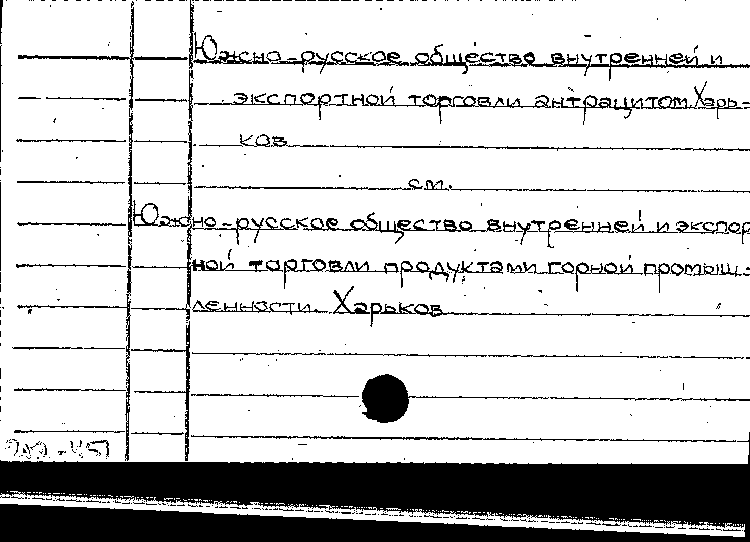 Южно-русское общество внутренней и
экспортной торговли антрацитом Харь-
ков
см.
Южно-русское общество внутренней и экспор
ной торговли продуктами горной промыш-
ленности. Харьков